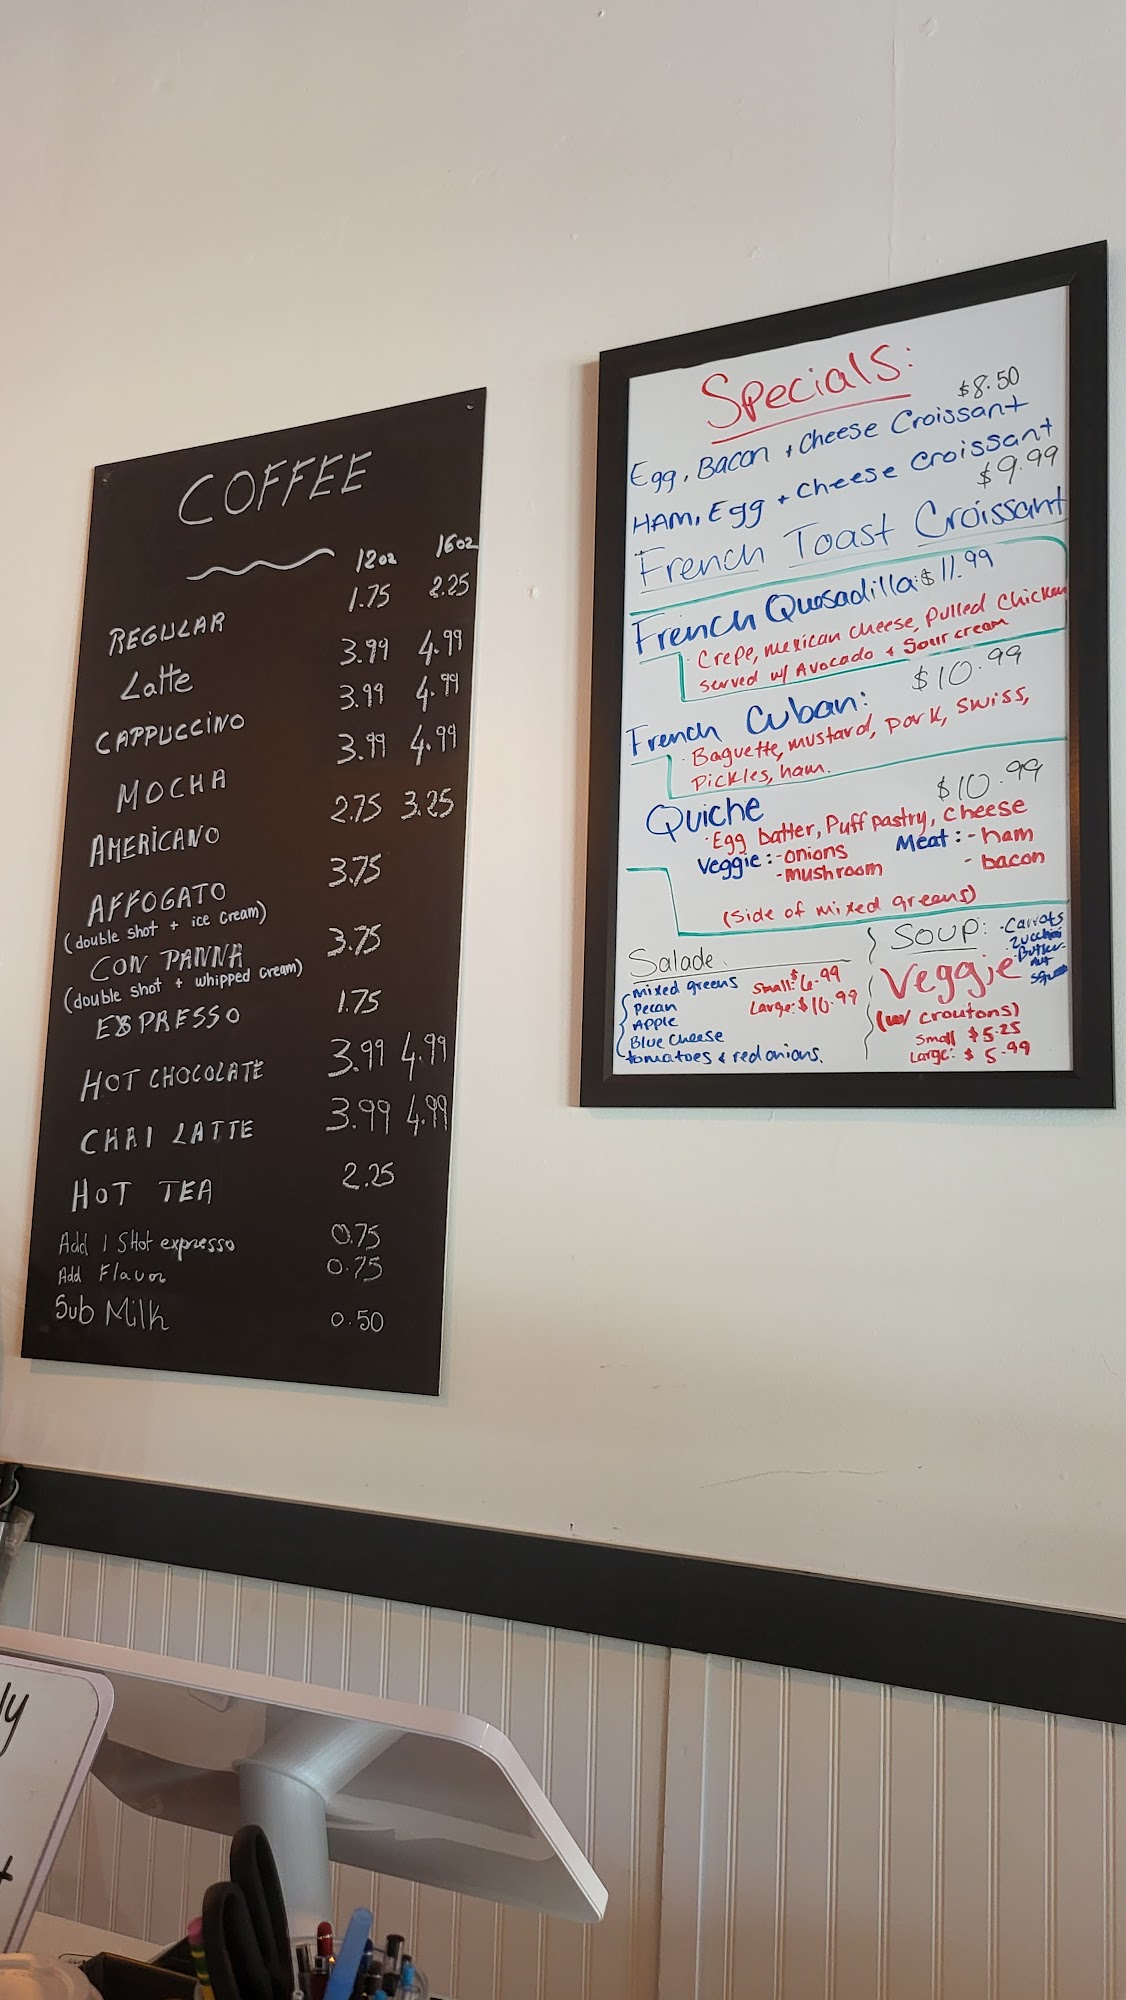 COFFEE
12oz 16oz
REGULAR 1.75 2.25
Latte 3.99 4.99
CAPPUCCINO 3.99 4.99
MOCHA 3.99 4.99
AMERICANO 2.75 3.25
AFFOGATO 3.75
(double shot + ice cream)
CON PANNA 3.75
(double shot + whipped cream)
ESPRESSO 1.75
HOT CHOCOLATE 3.99 4.99
CHAI LATTE 3.99 4.99
HOT TEA 2.25
Add 1 SHot expresso 0.75
Add Flavor 0.75
Sub Milk 0.50
Specials:
$8.50
Egg, Bacon + cheese Croissant
HAM, Egg + cheese croissant
$9.99
French Toast Croissant
French Quesadilla: $11.99
· Crepe, mexican cheese, Pulled Chicken
served w/ Avocado + Sour cream
$10.99
French Cuban:
· Baguette, mustard, pork, swiss,
Pickles, ham.
$10.99
Quiche
· Egg batter, Puff pastry, cheese
Veggie: -onions Meat: - ham
-mushroom - bacon
(side of mixed greens)
Salade
mixed greens small: $6.99
Pecan Large: $10.99
Apple
Blue Cheese
tomatoes & red onions.
SOUP: -Carrots
Zucchini
-Butter-
nut
Veggie
(w/ croutons)
Small $5.25
Large: $5.99
ly